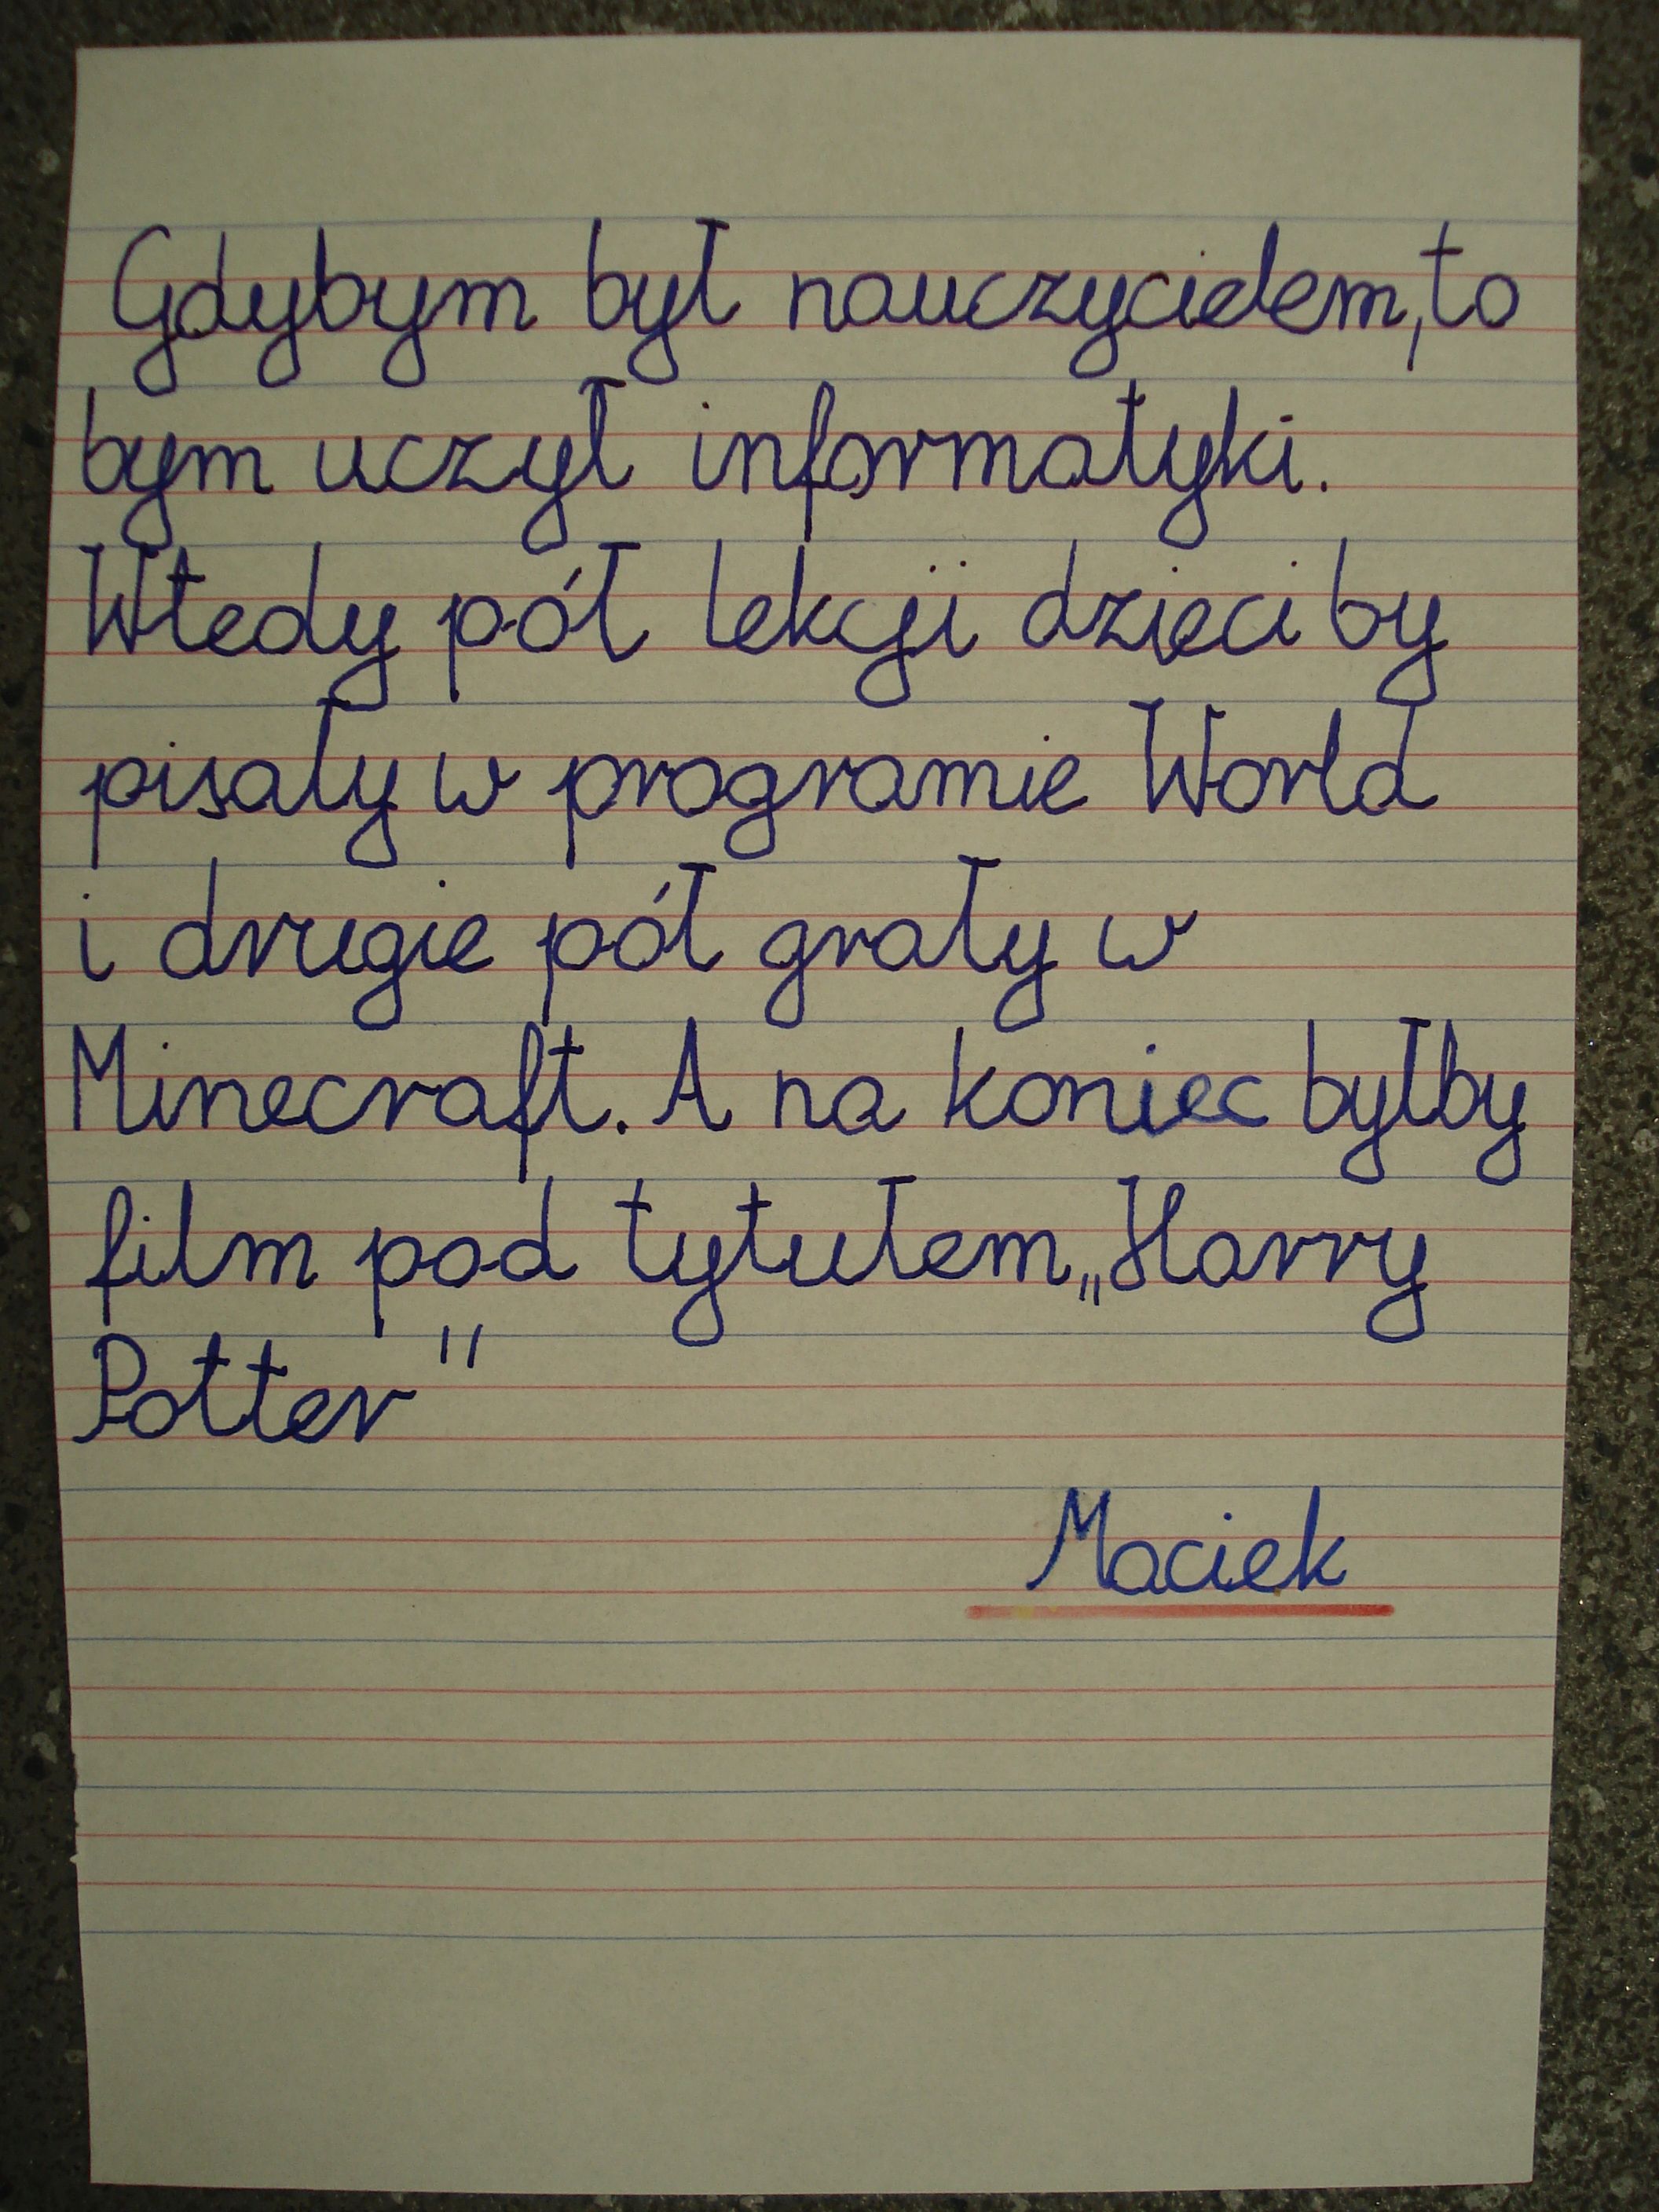 Gdybym był nauczycielem, to
bym uczył informatyki.
Wtedy pół lekcji dzieci by
pisały w programie World
i drugie pół grały w
Minecraft. A na koniec byłby
film pod tytułem „Harry
Potter"
Maciek